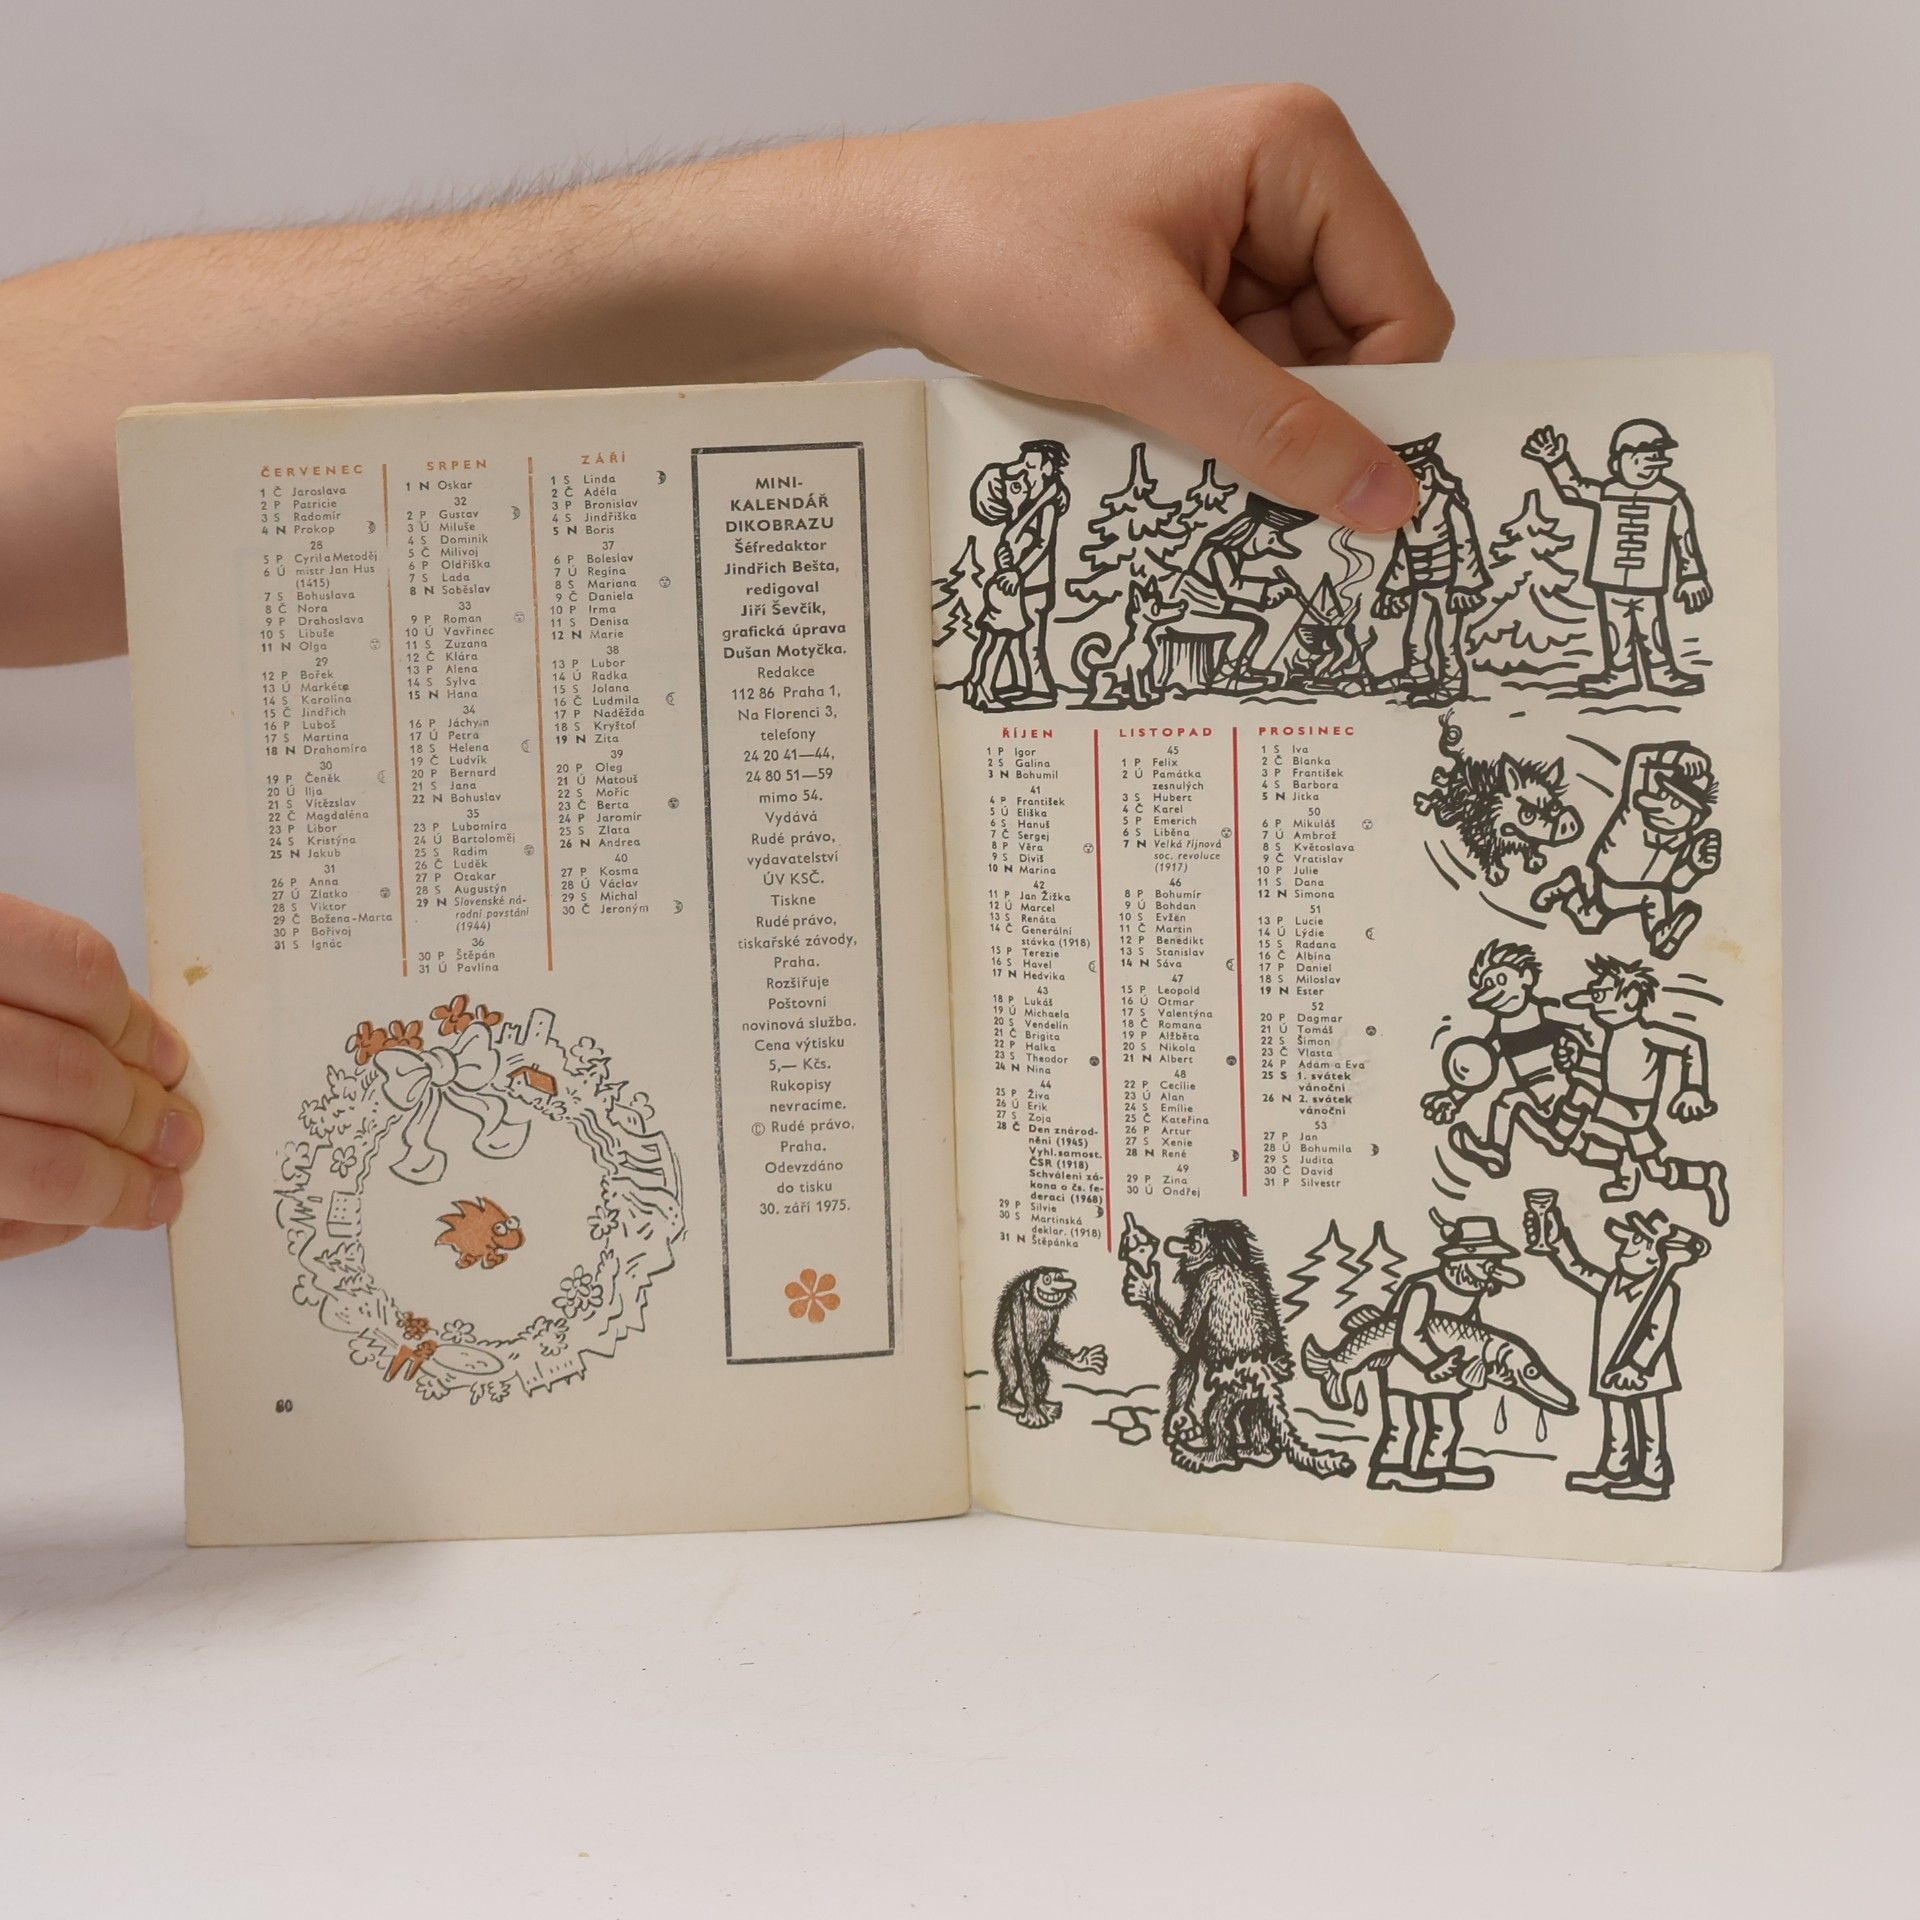 ČERVENEC
1 Č Jaroslava
2 P Patricie
3 S Radomír
4 N Prokop
28
5 P Cyril a Metoděj
6 Ú mistr Jan Hus
(1415)
7 S Bohuslava
8 Č Nora
9 P Drahoslava
10 S Libuše
11 N Olga
29
12 P Bořek
13 Ú Markéta
14 S Karolína
15 Č Jindřich
16 P Luboš
17 S Martina
18 N Drahomíra
30
19 P Čeněk
20 Ú Ilja
21 S Vítězslav
22 Č Magdaléna
23 P Libor
24 S Kristýna
25 N Jakub
31
26 P Anna
27 Ú Zlatko
28 S Viktor
29 Č Božena-Marta
30 P Bořivoj
31 S Ignác
SRPEN
1 N Oskar
32
2 P Gustav
3 Ú Miluše
4 S Dominik
5 Č Milivoj
6 P Oldřiška
7 S Lada
8 N Soběslav
33
9 P Roman
10 Ú Vavřinec
11 S Zuzana
12 Č Klára
13 P Alena
14 S Sylva
15 N Hana
34
16 P Jáchym
17 Ú Petra
18 S Helena
19 Č Ludvík
20 P Bernard
21 S Jana
22 N Bohuslav
35
23 P Lubomíra
24 Ú Bartoloměj
25 S Radim
26 Č Luděk
27 P Otakar
28 S Augustýn
29 N Slovenské ná-
rodní povstání
(1944)
36
30 P Štěpán
31 Ú Pavlína
ZÁŘÍ
1 S Linda
2 Č Adéla
3 P Bronislav
4 S Jindřiška
5 N Boris
37
6 P Boleslav
7 Ú Regína
8 S Mariana
9 Č Daniela
10 P Irma
11 S Denisa
12 N Marie
38
13 P Lubor
14 Ú Radka
15 S Jolana
16 Č Ludmila
17 P Naděžda
18 S Kryštof
19 N Zita
39
20 P Oleg
21 Ú Matouš
22 S Mořic
23 Č Berta
24 P Jaromír
25 S Zlata
26 N Andrea
40
27 P Kosma
28 Ú Václav
29 S Michal
30 Č Jeroným
MINI-
KALENDÁŘ
DIKOBRAZU
Šéfredaktor
Jindřich Bešta,
redigoval
Jiří Ševčík,
grafická úprava
Dušan Motyčka.
Redakce
112 86 Praha 1,
Na Florenci 3,
telefony
24 20 41—44,
24 80 51—59
mimo 54.
Vydává
Rudé právo,
vydavatelství
ÚV KSČ.
Tiskne
Rudé právo,
tiskařské závody,
Praha.
Rozšiřuje
Poštovní
novinová služba.
Cena výtisku
5,— Kčs.
Rukopisy
nevracíme.
© Rudé právo,
Praha.
Odevzdáno
do tisku
30. září 1975.
80
ŘÍJEN
1 P Igor
2 S Galina
3 N Bohumil
41
4 P František
5 Ú Eliška
6 S Hanuš
7 Č Sergej
8 P Věra
9 S Diviš
10 N Marina
42
11 P Jan Žižka
12 Ú Marcel
13 S Renáta
14 Č Generální
stávka (1918)
15 P Terezie
16 S Havel
17 N Hedvika
43
18 P Lukáš
19 Ú Michaela
20 S Vendelín
21 Č Brigita
22 P Halka
23 S Theodor
24 N Nina
44
25 P Živa
26 Ú Erik
27 S Zoja
28 Č Den znárod-
nění (1945)
Vyhl. samost.
ČSR (1918)
Schválení zá-
kona o čs. fe-
deraci (1968)
29 P Silvie
30 S Martinská
deklar. (1918)
31 N Štěpánka
LISTOPAD
45
1 P Felix
2 Ú Památka
zesnulých
3 S Hubert
4 Č Karel
5 P Emerich
6 S Liběna
7 N Velká říjnová
soc. revoluce
(1917)
46
8 P Bohumír
9 Ú Bohdan
10 S Evžen
11 Č Martin
12 P Benedikt
13 S Stanislav
14 N Sáva
47
15 P Leopold
16 Ú Otmar
17 S Valentýna
18 Č Romana
19 P Alžběta
20 S Nikola
21 N Albert
48
22 P Cecílie
23 Ú Alan
24 S Emílie
25 Č Kateřina
26 P Artur
27 S Xenie
28 N René
49
29 P Zina
30 Ú Ondřej
PROSINEC
1 S Iva
2 Č Blanka
3 P František
4 S Barbora
5 N Jitka
50
6 P Mikuláš
7 Ú Ambrož
8 S Květoslava
9 Č Vratislav
10 P Julie
11 S Dana
12 N Simona
51
13 P Lucie
14 Ú Lýdie
15 S Radana
16 Č Albína
17 P Daniel
18 S Miloslav
19 N Ester
52
20 P Dagmar
21 Ú Tomáš
22 S Šimon
23 Č Vlasta
24 P Adam a Eva
25 S 1. svátek
vánoční
26 N 2. svátek
vánoční
53
27 P Jan
28 Ú Bohumila
29 S Judita
30 Č David
31 P Silvestr